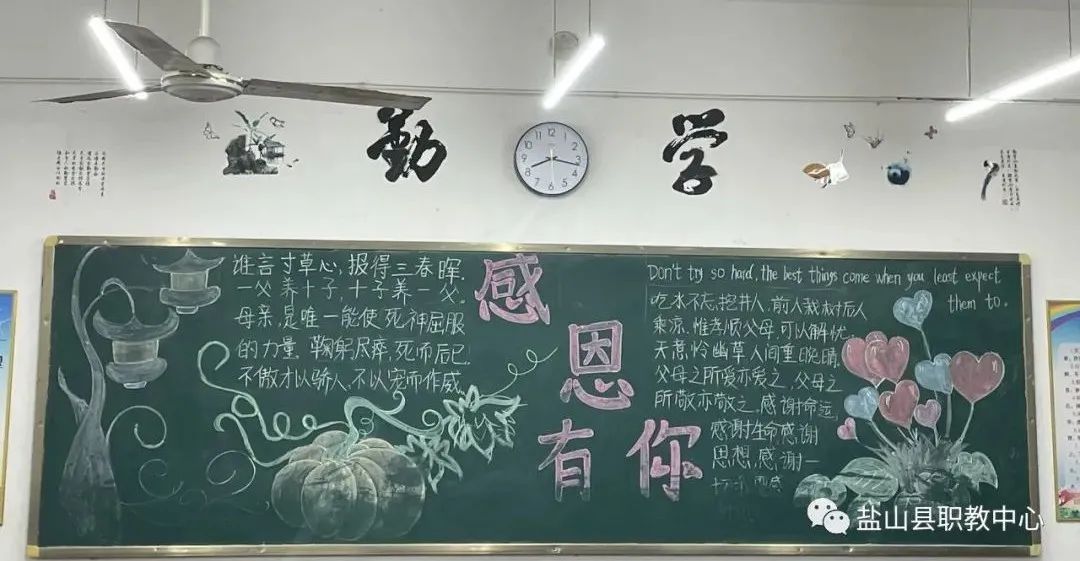 勤
学
12
1
2
3
4
5
6
7
8
9
10
11
谁言寸草心，报得三春晖.
一父养十子，十子养一父.
母亲，是唯一能使死神屈服
的力量.鞠躬尽瘁，死而后已.
不傲才以骄人，不以宠而作威.
感
恩
有
你
Don't try so hard, the best things come when you least expect
them to.
吃水不忘，挖井人，前人栽树后人
乘凉，惟孝顺父母，可以解忧.
天意，怜幽草人间重晚晴，
父母之所爱亦爱之，父母之
所敬亦敬之，感谢命运，
感谢生命，感谢
思想，感谢一
盐山县职教中心